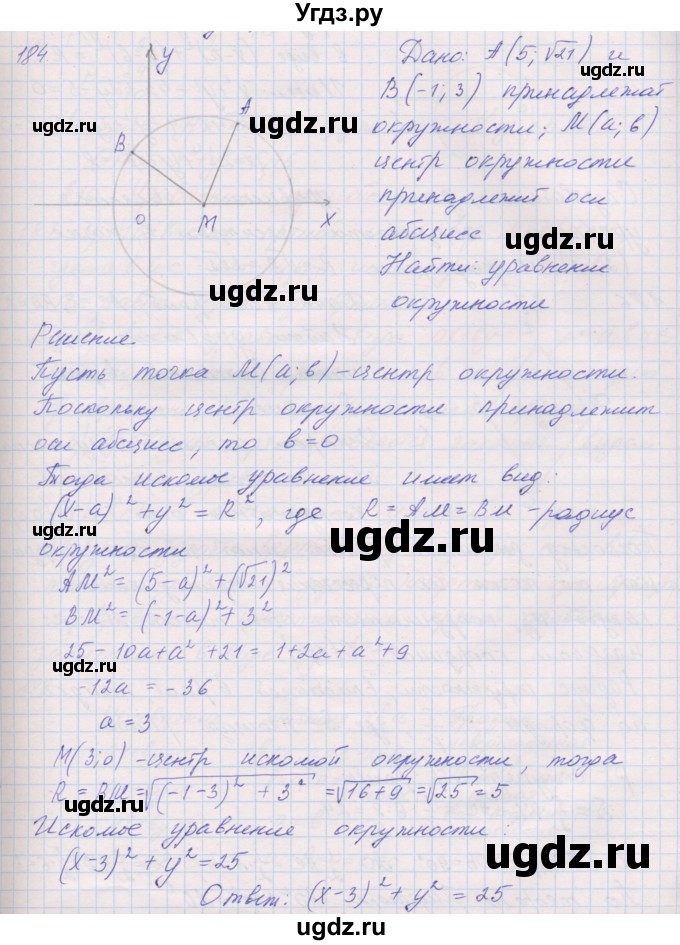 Угдз.ру
184
y
A
B
0
M
x
Дано: A(5; √21) и
B(-1; 3) принадлежат
окружности; M(a; в)
центр окружности
принадлежит оси
абсцисс
Найти: уравнение
окружности
ugdz.ru
ugdz.ru
ugdz.ru
ugdz.ru
ugdz.ru
ugdz.ru
Решение.
Пусть точка M(a; в) - центр окружности.
Поскольку центр окружности принадлежит
оси абсцисс, то в=0
Тогда искомое уравнение имеет вид:
(x-a)² + y² = R², где R = AM = BM - радиус
ugdz.ru
ugdz.ru
окружности
AM² = (5-a)² + (√21)²
BM² = (-1-a)² + 3²
25 - 10a + a² + 21 = 1 + 2a + a² + 9
ugdz.ru
ugdz.ru
-12a = -36
a = 3
M(3; 0) - центр искомой окружности, тогда
R = BM = √((-1-3)² + 3²) = √(16+9) = √25 = 5
ugdz.ru
ugdz.ru
Искомое уравнение окружности:
(x-3)² + y² = 25
ugdz.ru
Ответ: (x-3)² + y² = 25
ugdz.ru